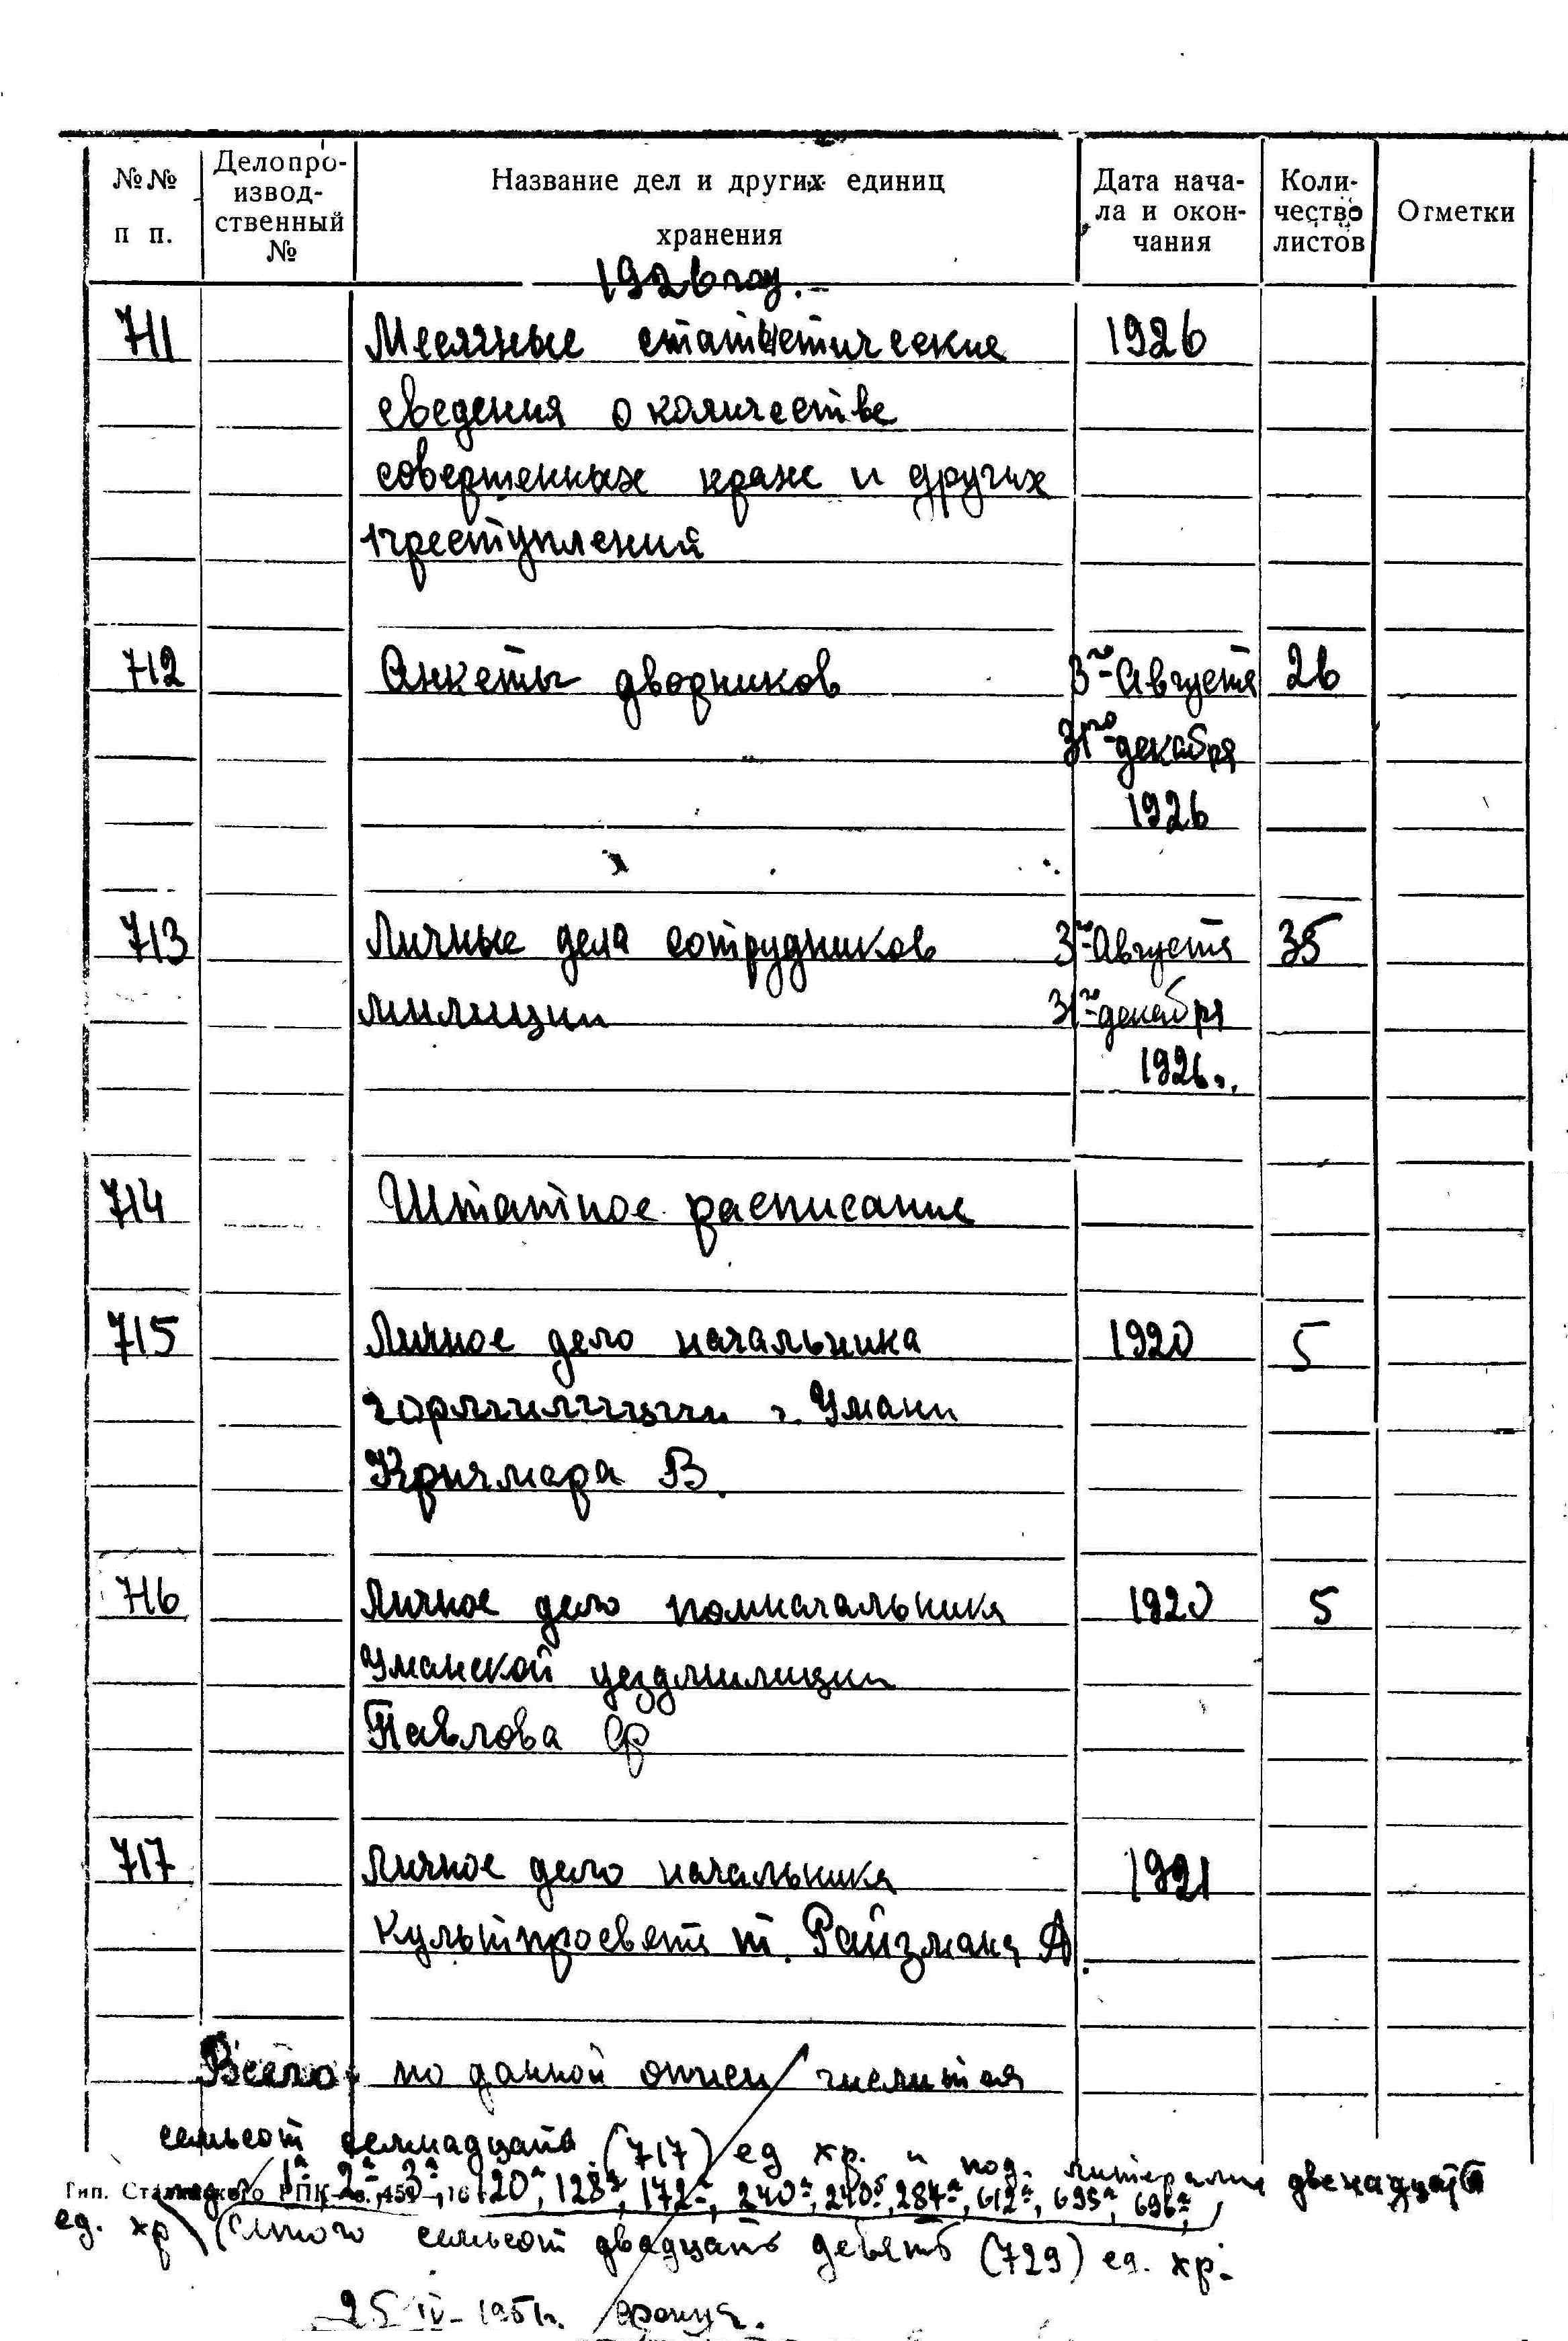 №№ п п.
Делопро-
извод-
ственный
№
Название дел и других единиц
хранения
Дата нача-
ла и окон-
чания
Коли-
чество
листов
Отметки
1926 год.-
711 Месячные статистические 1926
сведения о количестве
совершенных краж и других
преступлений
712 Анкеты дворников 3го Августа 26
31го декабря
1926
713 Личные дела сотрудников 3го Августа 35
милиции 31го декабря
1926г.
714 Штатное расписание
715 Личное дело начальника 1920 5
гормилиции г. Умани
Кричмара В.
716 Личное дело помначальника 1920 5
Уманской уездмилиции
Павлова Ф
717 Личное дело начальника 1921
Культпросвета т. Райзмана А.
Всего по данной описи числится
семьсот семнадцать (717) ед хр. и под литерами двенадцать
Тип. 1а 2а 3а, 120а, 128а, 172а, 240а, 240б, 284а, 612а, 695а, 696а,
ед. хр (Итого семьсот двадцать девять (729) ед. хр.
25 IV-1951г.